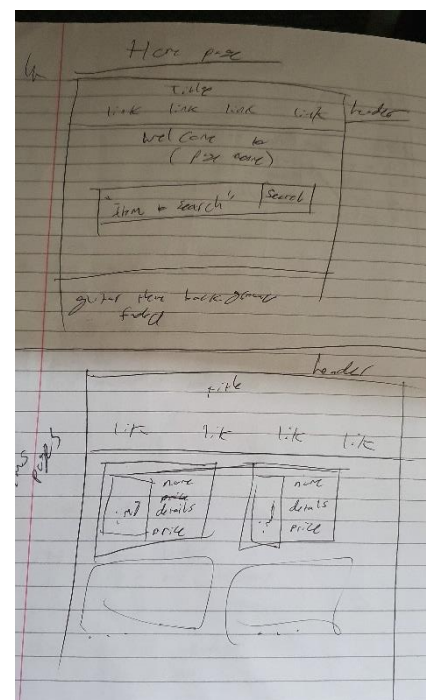 Home page
Title
link link link link header
Welcome to
(page name)
"item to search" Search
guitar theme background
faded
header
title
link link link link
pages
img name
price
details
price
img name
details
price
...
...